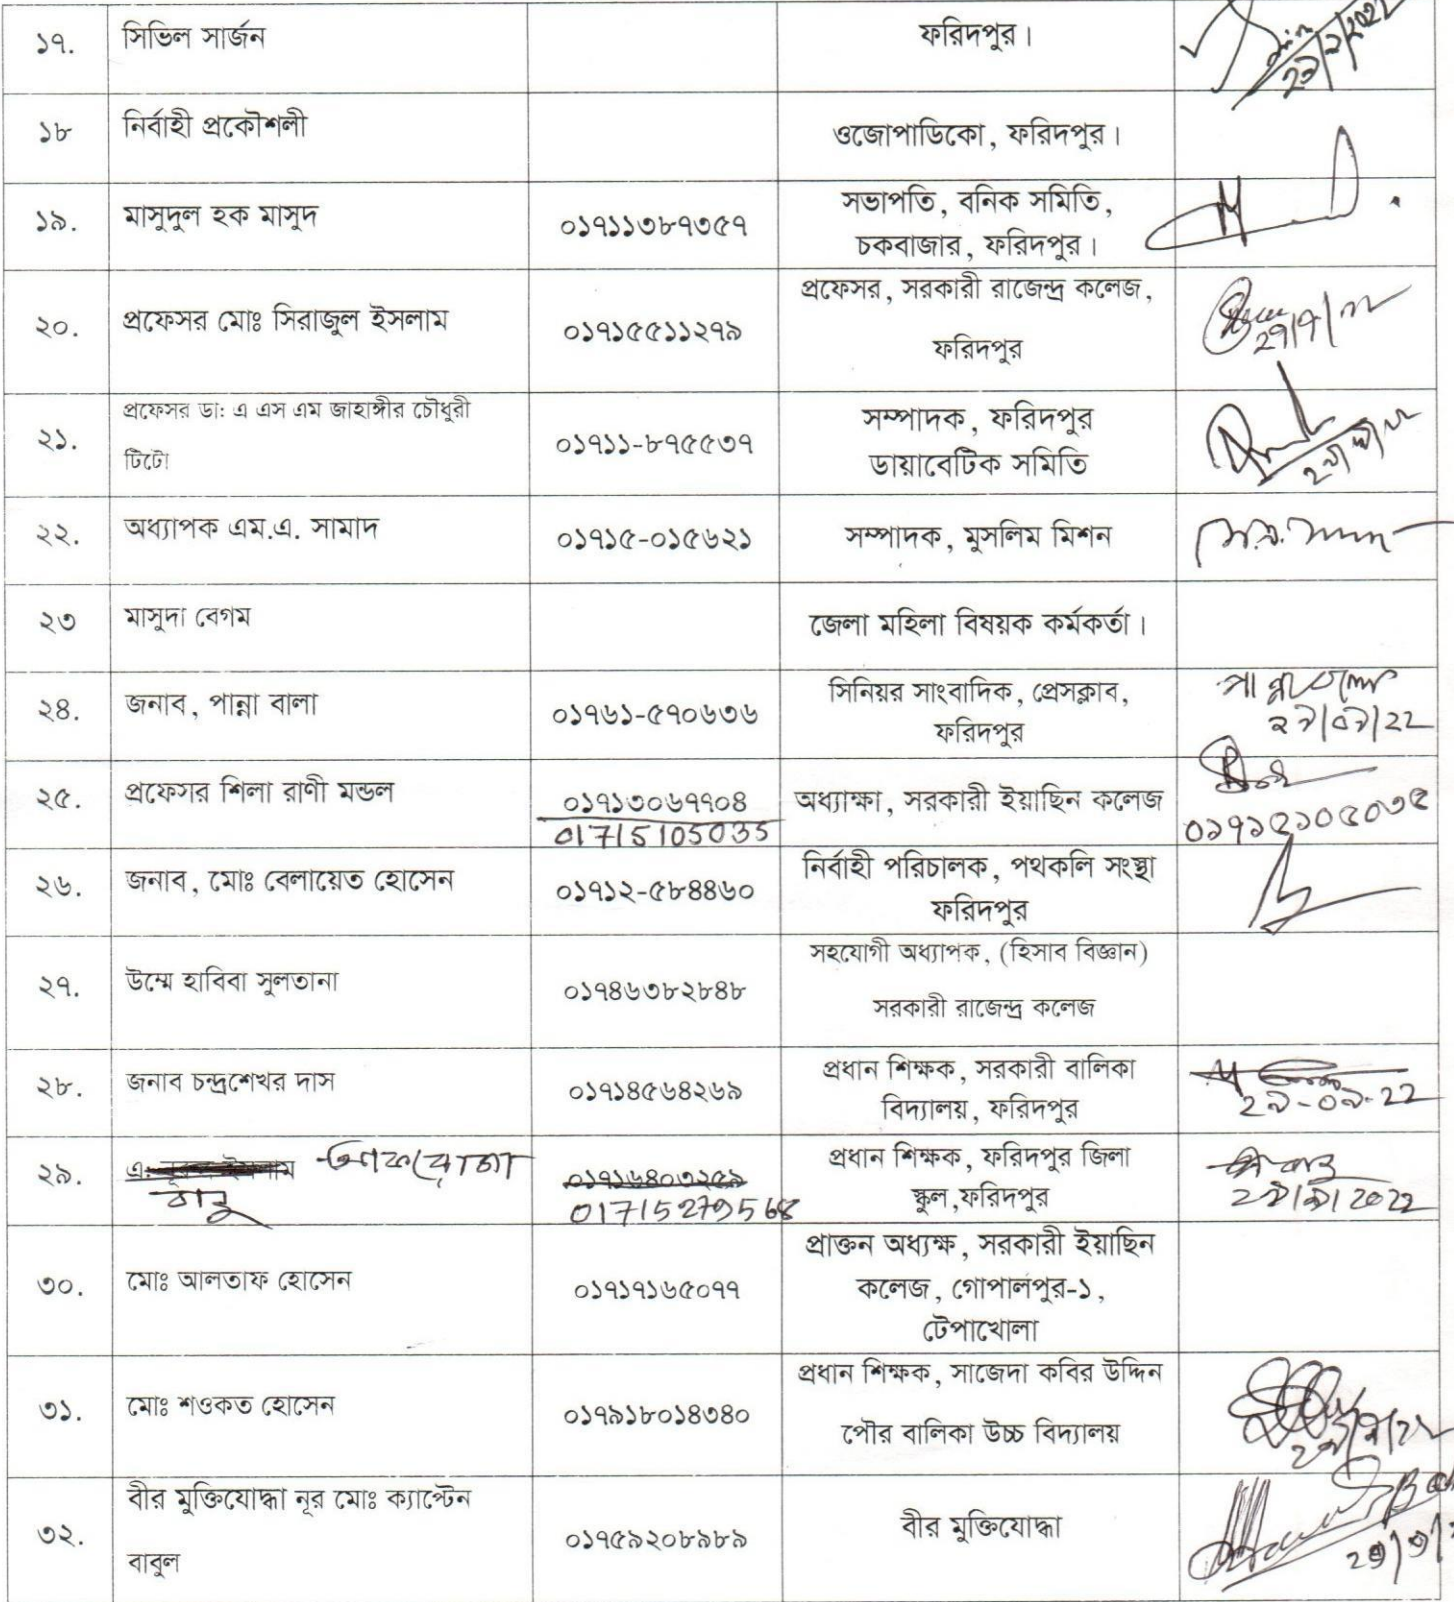 ১৭. সিভিল সার্জন ফরিদপুর।
১৮ নির্বাহী প্রকৌশলী ওজোপাডিকো, ফরিদপুর।
১৯. মাসুদুল হক মাসুদ ০১৭১১৩৮৭৩৫৭ সভাপতি, বনিক সমিতি,
চকবাজার, ফরিদপুর।
২০. প্রফেসর মোঃ সিরাজুল ইসলাম ০১৭১৫৫১১২৭৯ প্রফেসর, সরকারী রাজেন্দ্র কলেজ,
ফরিদপুর
২১. প্রফেসর ডা: এ এস এম জাহাঙ্গীর চৌধুরী
টিটো ০১৭১১-৮৭৫৫৩৭ সম্পাদক, ফরিদপুর
ডায়াবেটিক সমিতি
২২. অধ্যাপক এম.এ. সামাদ ০১৭১৫-০১৫৬২১ সম্পাদক, মুসলিম মিশন
২৩ মাসুদা বেগম জেলা মহিলা বিষয়ক কর্মকর্তা।
২৪. জনাব, পান্না বালা ০১৭৬১-৫৭০৬৩৬ সিনিয়র সাংবাদিক, প্রেসক্লাব,
ফরিদপুর
পান্না বালা
২৫. প্রফেসর শিলা রাণী মন্ডল ০১৭১৩০৬৭৭০৪ অধ্যাক্ষা, সরকারী ইয়াছিন কলেজ
01715105035 ০১৭১৫১০৫০৩৫
২৬. জনাব, মোঃ বেলায়েত হোসেন ০১৭১২-৫৮৪৪৬০ নির্বাহী পরিচালক, পথকলি সংস্থা
ফরিদপুর
২৭. উম্মে হাবিবা সুলতানা ০১৭৪৬৩৮২৮৪৮ সহযোগী অধ্যাপক, (হিসাব বিজ্ঞান)
সরকারী রাজেন্দ্র কলেজ
২৮. জনাব চন্দ্রশেখর দাস ০১৭১৪৫৬৪২৬৯ প্রধান শিক্ষক, সরকারী বালিকা
বিদ্যালয়, ফরিদপুর
২৯. বানু 01715279568 প্রধান শিক্ষক, ফরিদপুর জিলা
স্কুল,ফরিদপুর
৩০. মোঃ আলতাফ হোসেন ০১৭১৭১৬৫০৭৭ প্রাক্তন অধ্যক্ষ, সরকারী ইয়াছিন
কলেজ, গোপালপুর-১,
টেপাখোলা
৩১. মোঃ শওকত হোসেন ০১৭৯১৮০১৪৩৪০ প্রধান শিক্ষক, সাজেদা কবির উদ্দিন
পৌর বালিকা উচ্চ বিদ্যালয়
৩২. বীর মুক্তিযোদ্ধা নূর মোঃ ক্যাপ্টেন
বাবুল ০১৭৫৯২০৮৯৮৯ বীর মুক্তিযোদ্ধা